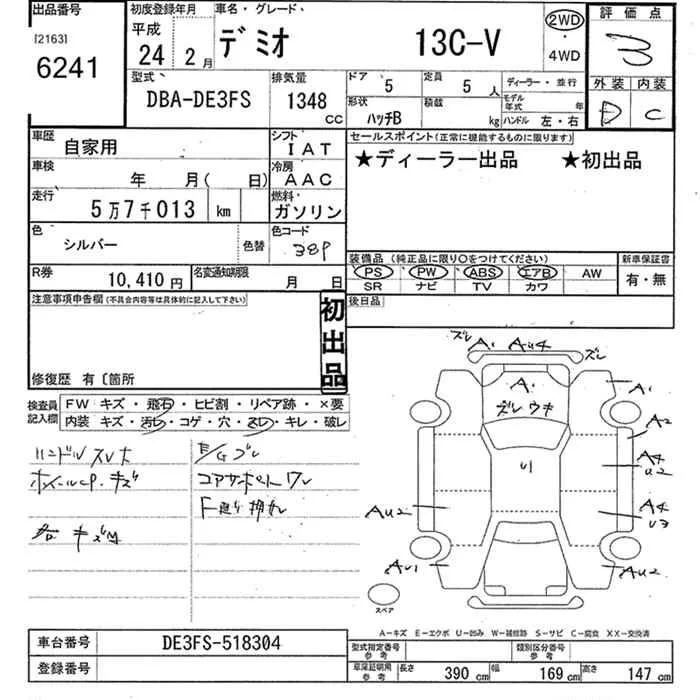 出品番号 初度登録年月 車名・グレード 評価点
[2163] 平成 デミオ 13C-V 2WD 3
6241 24 2月 4WD
型式 排気量 ドア 5 定員 5人 ディーラー・並行 外装 内装
DBA-DE3FS 1348 CC 形状 ハッチB 積載 kg モデル年式 年 D C
ハンドル 左・右
車歴 自家用 シフト IAT セールスポイント(正常に機能するものに限ります)
車検 年 月( 日) 冷房 AAC ★ディーラー出品 ★初出品
走行 5万7千013 km 燃料 ガソリン
色 シルバー 色替 色コード 38P 装備品 (純正品に限り○をつけてください) 新車保証書
PS PW ABS エアB AW 有・無
R券 10,410円 名変通知期限 月 日 SR ナビ TV カワ
注意事項申告欄(不具合内容等は具体的に記入して下さい) 初出品 後日品
修復歴 有〔箇所
検査員記入欄 FW キズ・飛石・ヒビ割・リペア跡・×要
内装 キズ・汚れ・コゲ・穴・スレ・キレ・破レ
ハンドルスレ大 E/Gブレ
ホイールCP.キズ コアサポートワレ
ズレ A1 AU4 ズレ
A1
A1 ズレウキ
A2
A4
U2
U1
AU2 A4
U3
AU1 AU2
スペア
A-キズ E-エクボ U-凹み W-補修跡 S-サビ C-腐食 XX-交換済
車台番号 DE3FS-518304 型式指定番号参考 類別区分番号参考
登録番号 車庫証明用参考 長さ 390 cm 幅 169 cm 高さ 147 cm